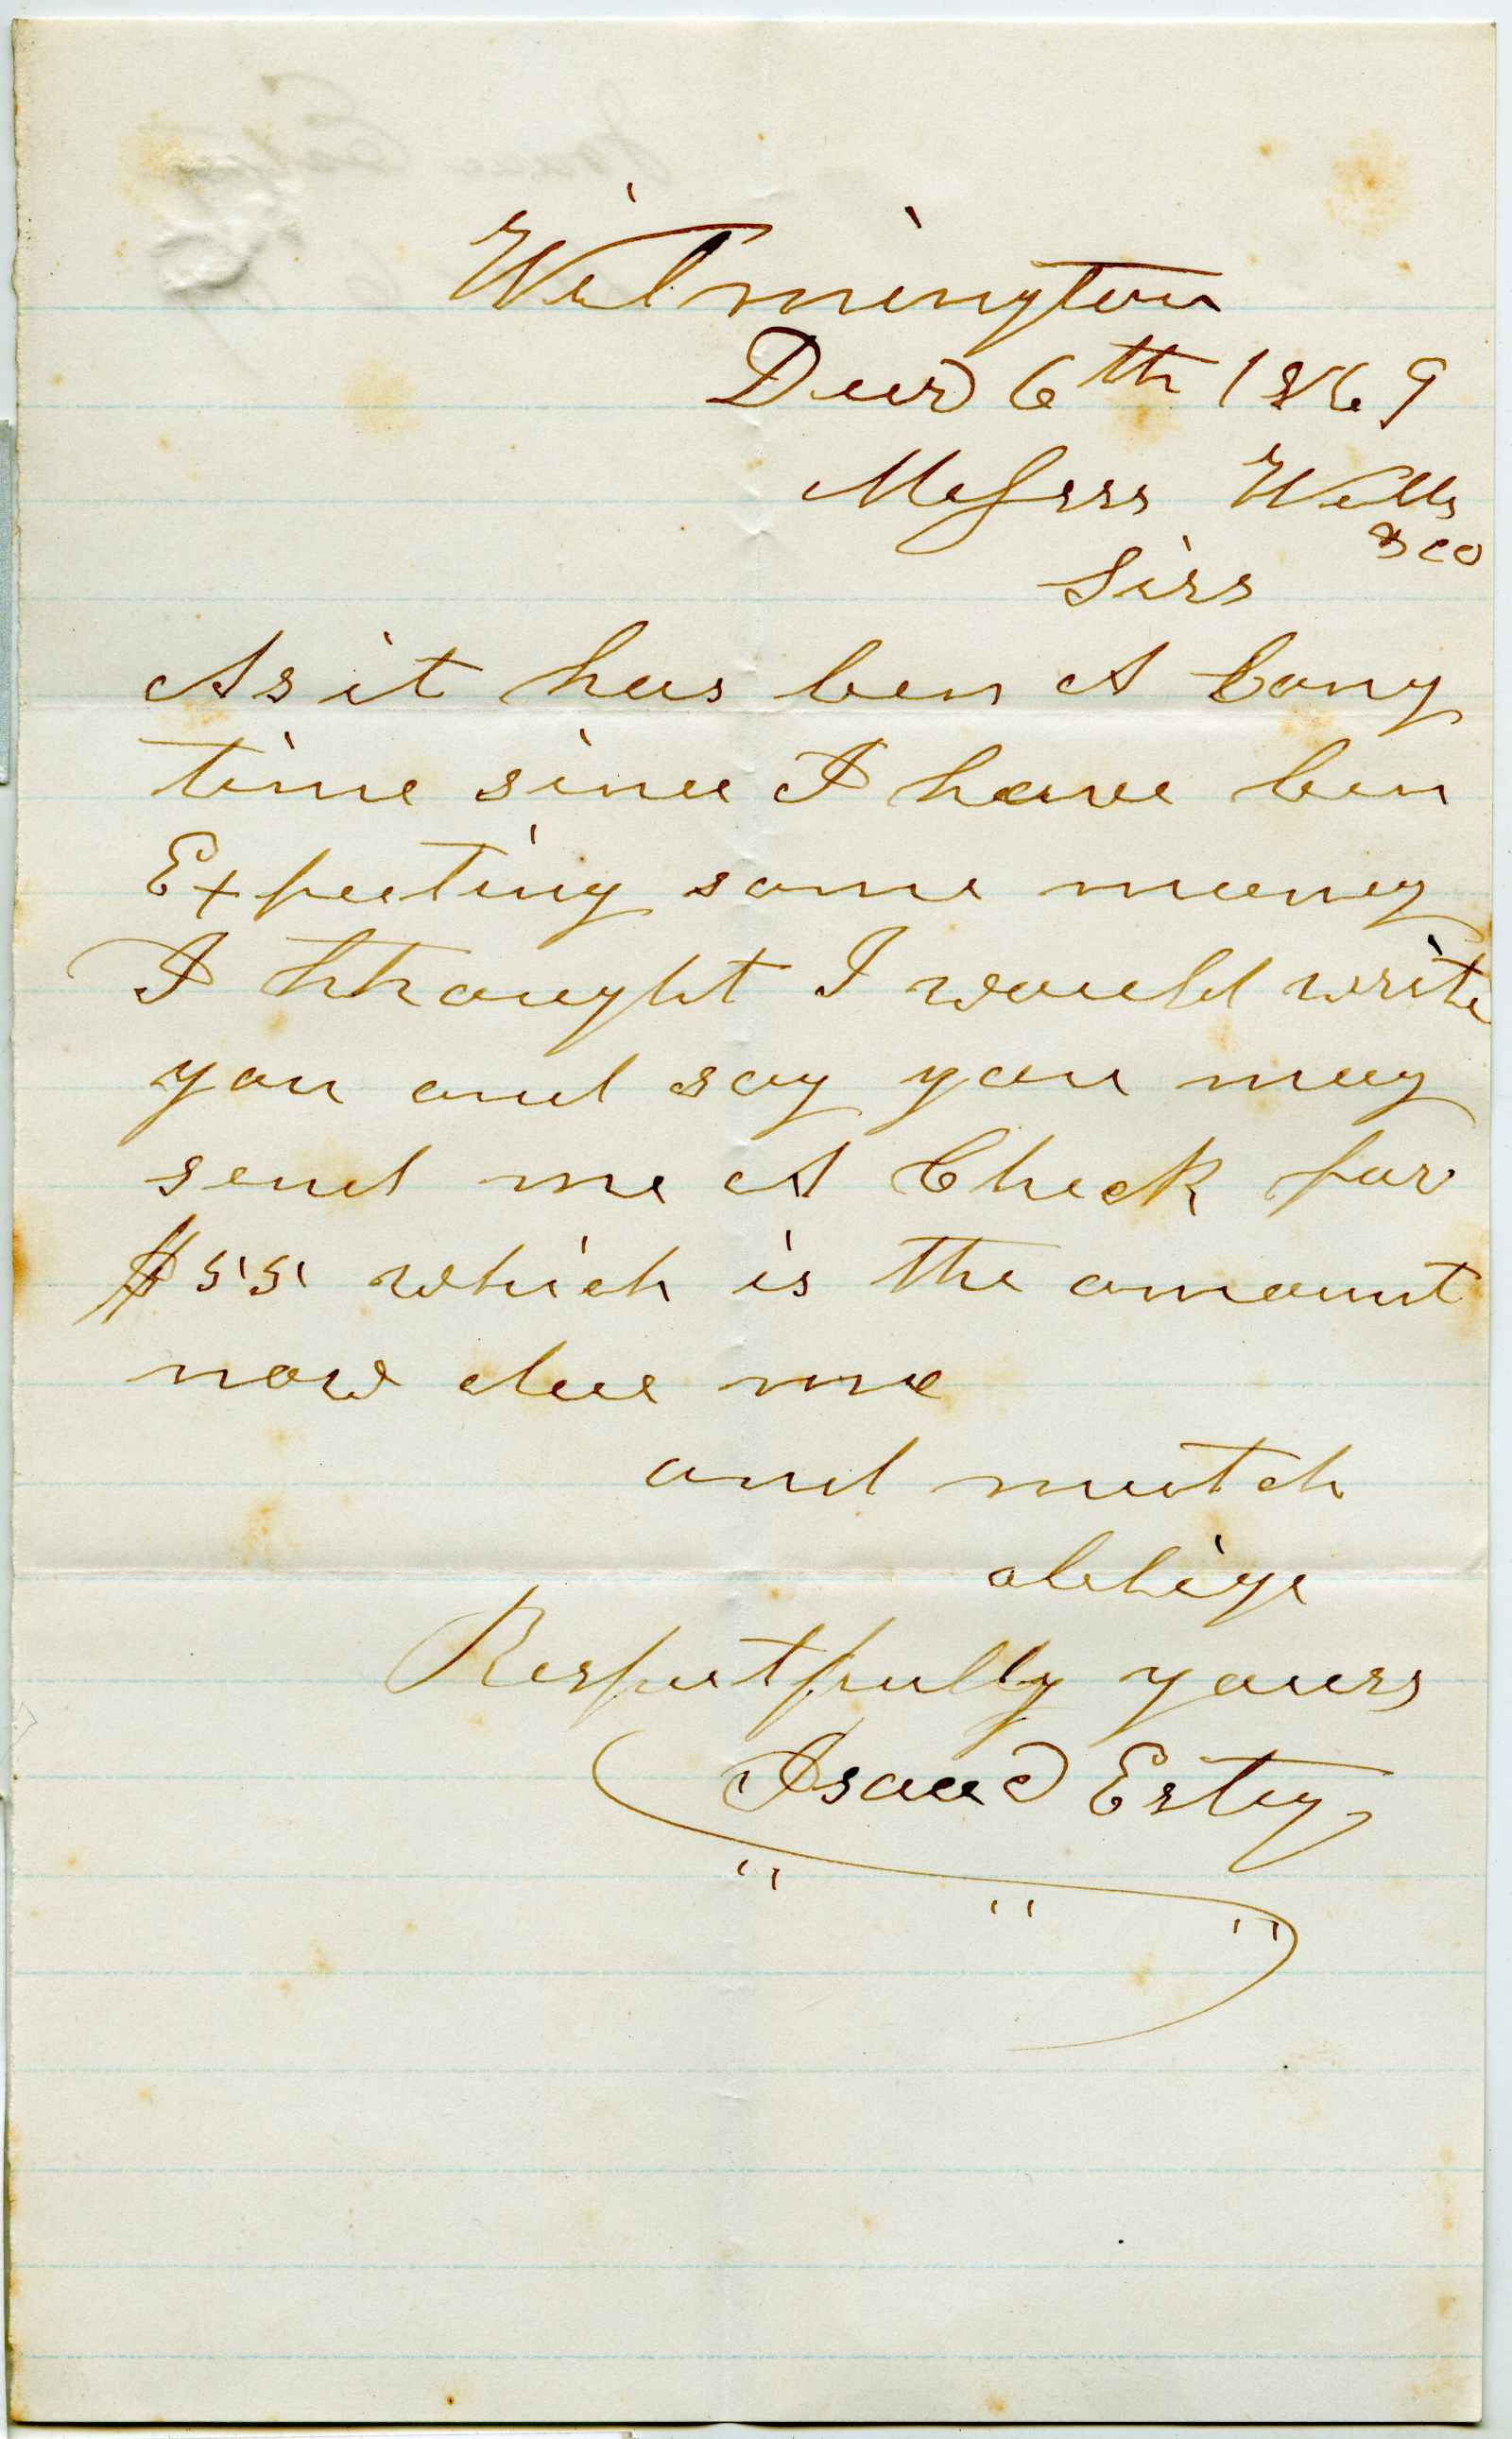 Wilmington
Decr 6th 1869
Messrs Wells
& co
Sirs
As it has ben A Long
time since I have ben
Expecting some money
I thought I would write
you and say you may
send me A Check for
$55 which is the amount
now due me
and mutch
oblige
Respectfully yours
Isaac Estey